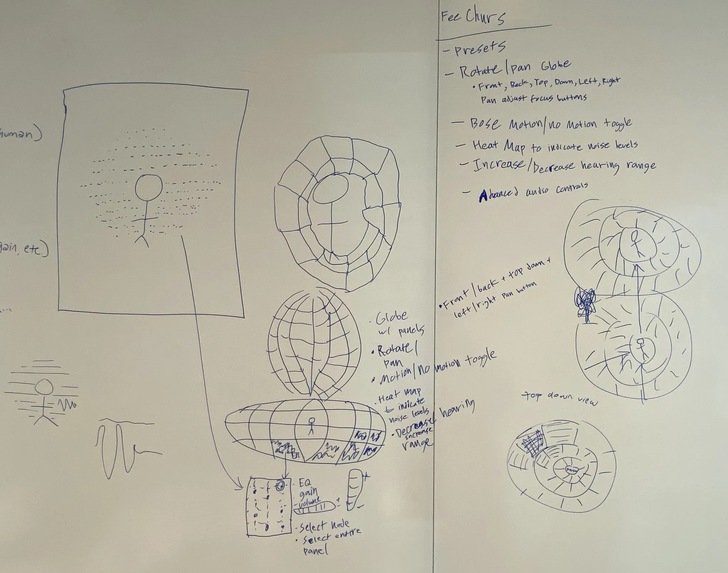 human)
gain, etc)
Fee Churs
- Presets
- Rotate/Pan Globe
• Front, Back, Top, Down, Left, Right
Pan adjust focus buttons
- Base Motion/no Motion toggle
- Heat Map to indicate noise levels
- Increase/Decrease hearing range
- Advanced audio controls
• Front/back + top down +
left/right pan button
top down view
• Globe
w/ panels
• Rotate/
Pan
• Motion/No motion toggle
• Heat map
to indicate
noise levels
• Decrease hearing
increase
range
• EQ
gain
volume
+
-
- Select node
• Select entire
panel